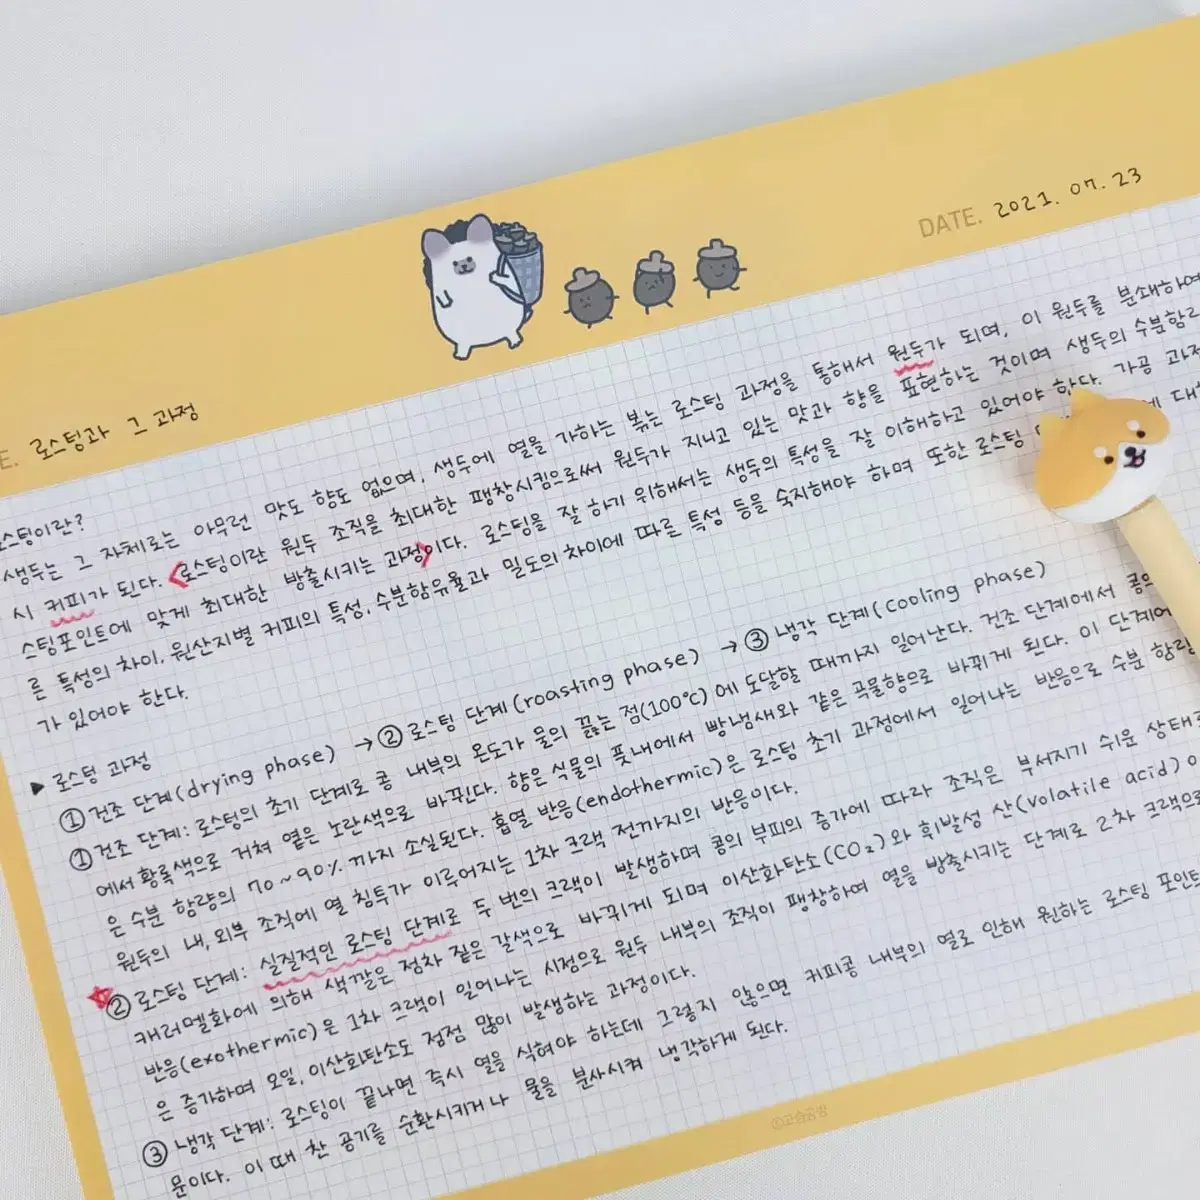 DATE. 2021. 07. 23
E. 로스팅과 그 과정
로스팅이란?
생두는 그 자체로는 아무런 맛도 향도 없으며, 생두에 열을 가하는 볶는 로스팅 과정을 통해서 원두가 되며, 이 원두를 분쇄하여
시 커피가 된다. <로스팅이란 원두 조직을 최대한 팽창시킴으로써 원두가 지니고 있는 맛과 향을 표현하는 것이며 생두의 수분함
스팅포인트에 맞게 최대한 방출시키는 과정>이다. 로스팅을 잘 하기 위해서는 생두의 특성을 잘 이해하고 있어야 한다. 가공 과정
른 특성의 차이, 원산지별 커피의 특성, 수분함유율과 밀도의 차이에 따른 특성 등을 숙지해야 하며 또한 로스팅 에 대
가 있어야 한다.
▶ 로스팅 과정
① 건조 단계(drying phase) → ② 로스팅 단계(roasting phase) → ③ 냉각 단계(cooling phase)
① 건조 단계: 로스팅의 초기 단계로 콩 내부의 온도가 물의 끓는 점(100℃)에 도달할 때까지 일어난다. 건조 단계에서 콩의
에서 황록색으로 거쳐 옅은 노란색으로 바뀐다. 향은 식물의 풋내에서 빵냄새와 같은 곡물향으로 바뀌게 된다. 이 단계에
은 수분 함량의 70~90% 까지 소실된다. 흡열 반응(endothermic)은 로스팅 초기 과정에서 일어나는 반응으로 수분 함량
원두의 내, 외부 조직에 열 침투가 이루어지는 1차 크랙 전까지의 반응이다.
② 로스팅 단계: 실질적인 로스팅 단계로 두 번의 크랙이 발생하며 콩의 부피의 증가에 따라 조직은 부서지기 쉬운 상태로
캐러멜화에 의해 색깔은 점차 짙은 갈색으로 바뀌게 되며 이산화탄소(CO₂)와 휘발성 산(volatile acid)이
반응(exothermic)은 1차 크랙이 일어나는 시점으로 원두 내부의 조직이 팽창하며 열을 방출시키는 단계로 2차 크랙으로
은 증가하며 오일, 이산화탄소도 점점 많이 발생하는 과정이다.
③ 냉각 단계: 로스팅이 끝나면 즉시 열을 식혀야 하는데 그렇지 않으면 커피콩 내부의 열로 인해 원하는 로스팅 포인트
문이다. 이 때 찬 공기를 순환시키거나 물을 분사시켜 냉각하게 된다.